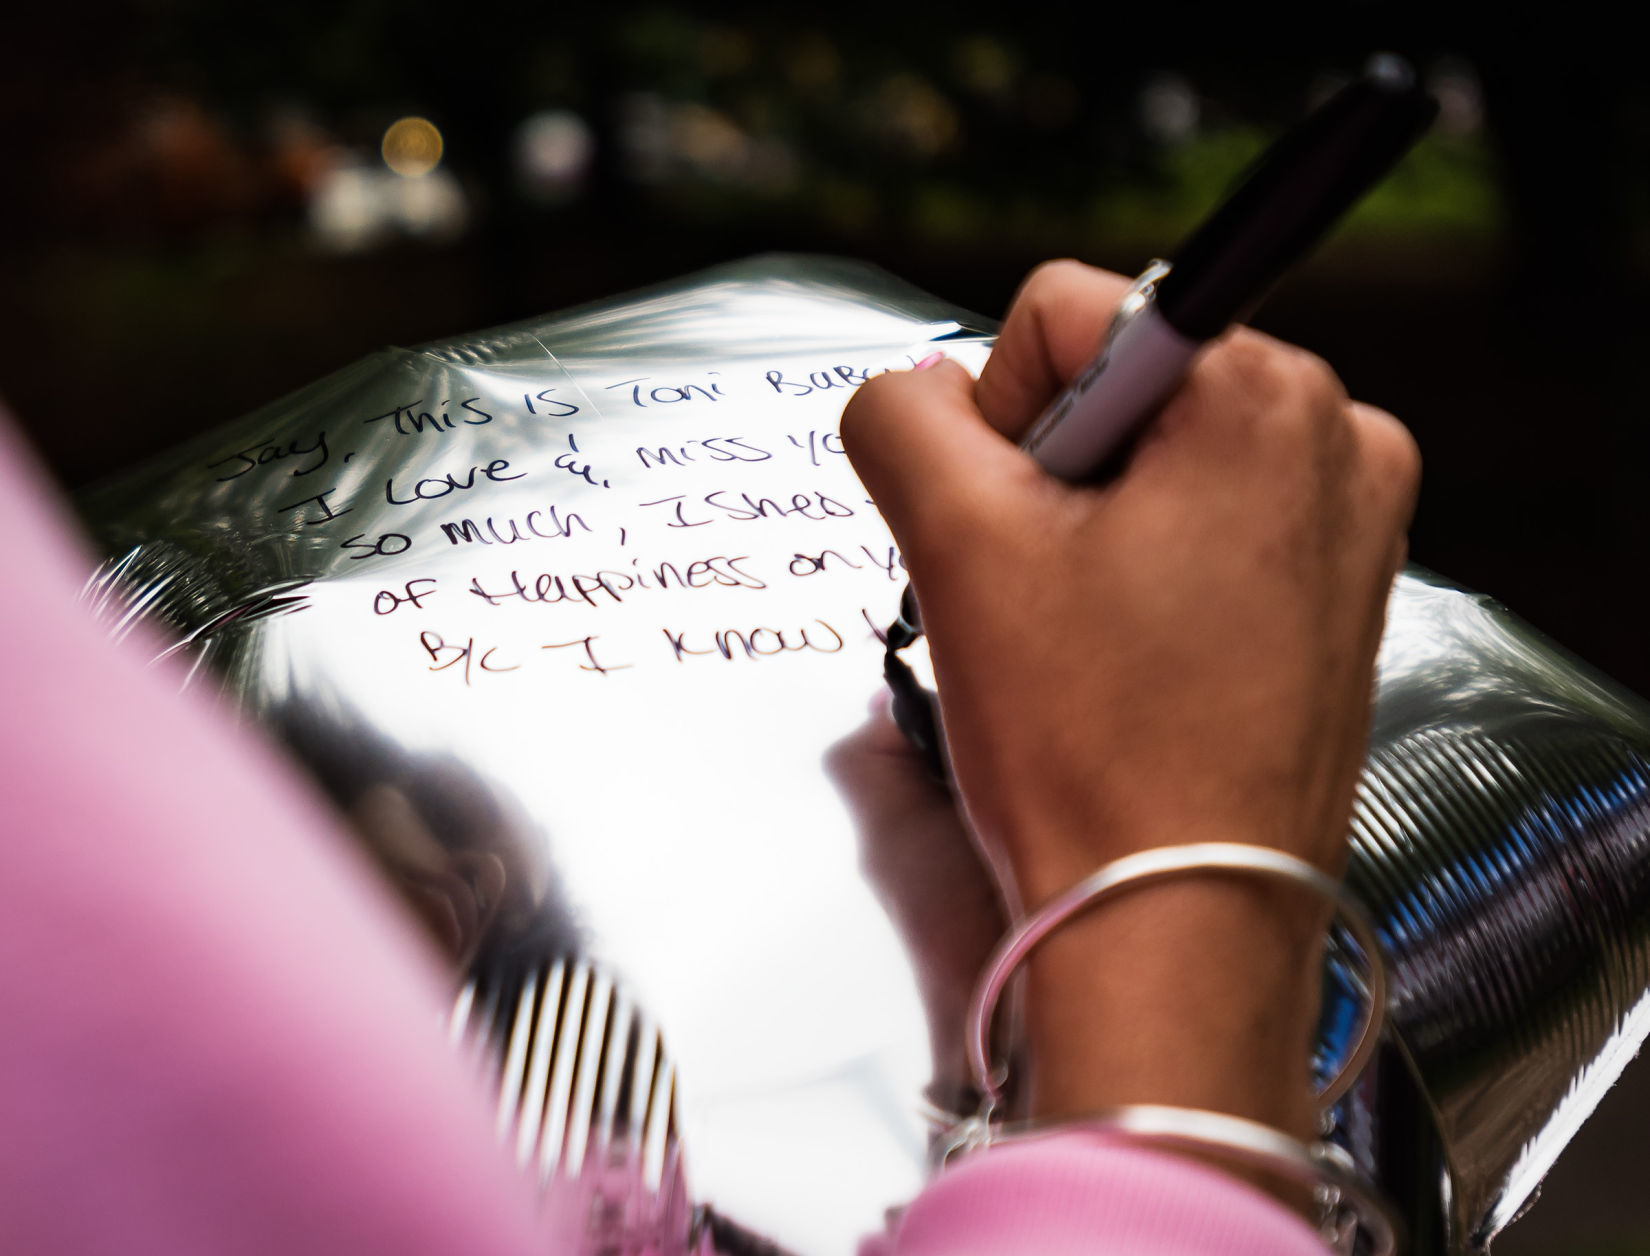 Jay, This is Toni Baby
I Love & miss yo
so much, I Shed
of Happiness on yo
B/c I know